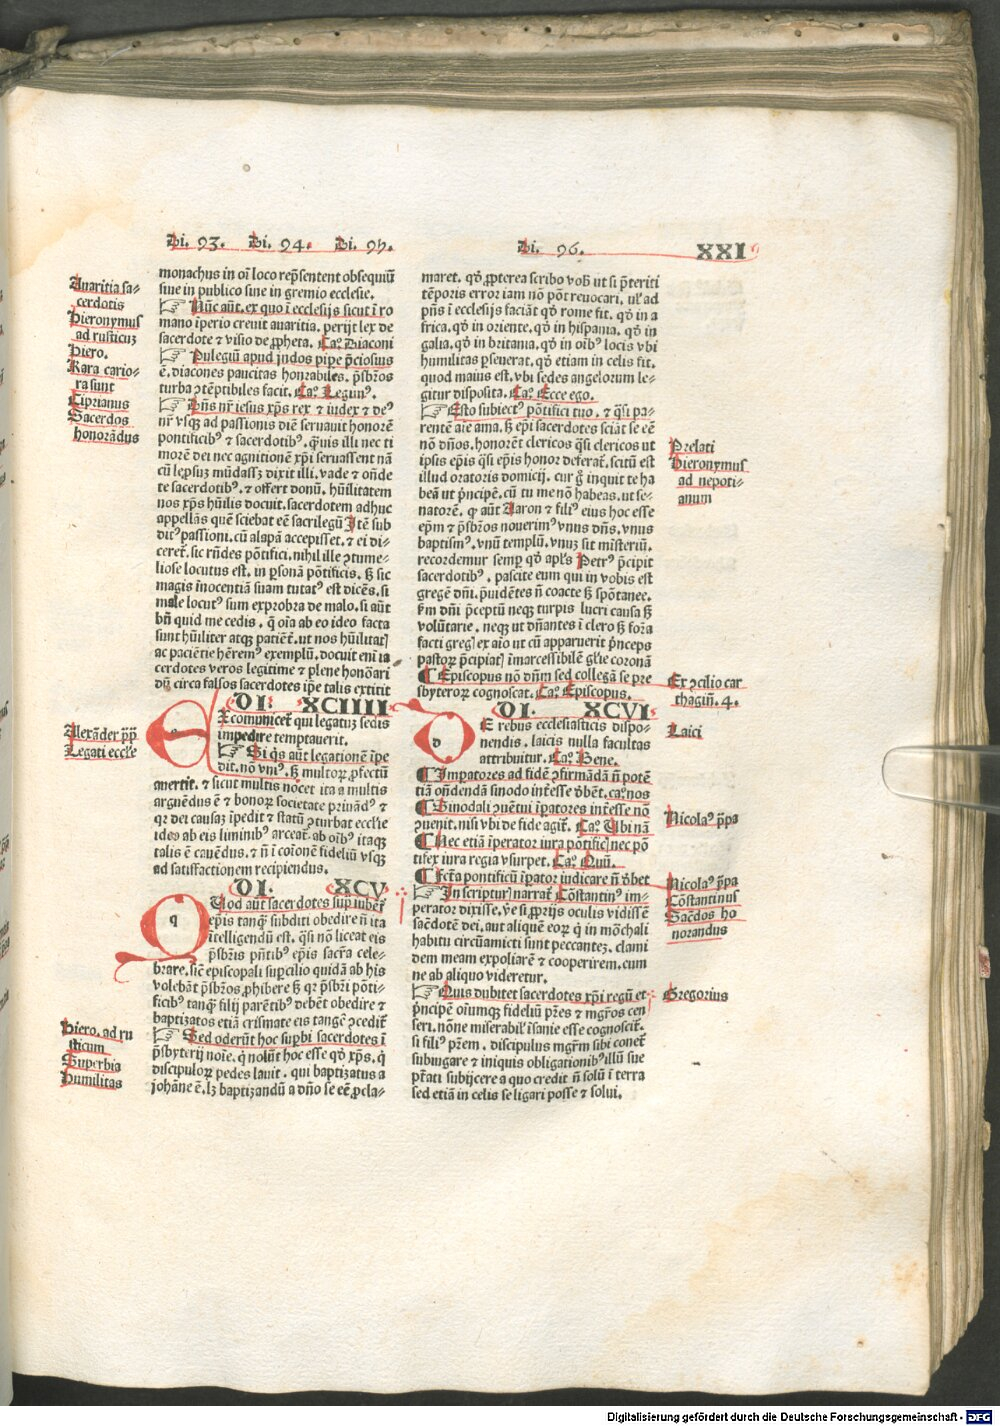 Di. 93. Di. 94. Di. 95.
Di. 96. XXI
Auaritia sa-
cerdotis
Hieronymus
ad rusticuz
Hiero.
Rara cario-
ra sunt
Ciprianus
Sacerdos
honorādus
Alexāder pp̄
Legati eccl'ie
Hiero. ad ru
sticum
Superbia
Humilitas
monachus in oī loco rep̄sentent obsequiū
siue in publico siue in gremio ecclesie.
☞ Nūc aūt. ex quo ī ecclesijs sicut ī ro
mano īperio creuit auaritia. perijt lex de
sacerdote ⁊ visio de ꝓpheta. Ca⁰ Diaconi
☞ Pulegiū apud indos pipe p̄ciosius
ē, diacones paucitas honrabiles. p̄sbr̄os
turba ꝯtēptibiles facit. Ca⁰ Legim⁹.
☞ Dn̄s nr̄ iesus xp̄s rex ⁊ iudex ⁊ de⁹
nr̄ vsqꝫ ad passionis diē seruauit honorē
pontificib⁹ ⁊ sacerdotib⁹. q̄uis illi nec ti
morē dei nec agnitionē xp̄i seruassent nā
cū lep̄suz mūdassz dixit illi. vade ⁊ on̄de
te sacerdotib⁹. ⁊ offert donū. hūilitatem
nos xp̄s hūilis docuit. sacerdotem adhuc
appellās quē sciebat eē sacrilegū Itē sub
dit⁹ passioni. cū alapā accepisset. ⁊ ei di-
ceret̄. sic rn̄des pōtifici. nihil ille ꝯtume-
liose locutus est. in ꝑsonā pōtificis. sꝫ sic
magis inocentiā suam tutat⁹ est dicēs. si
male locut⁹ sum exprobra de malo. si aūt
bn̄ quid me cedis. q̄ oīa ab eo ideo facta
sunt hūiliter atqꝫ patiēt̄. ut nos hūilitat
ac paciētie hērem⁹ exemplū. docuit enī sa
cerdotes veros legitime ⁊ plene honōari
dū circa falsos sacerdotes ip̄e talis extitit
DI: XCIIII
e Xcomunicet̄ qui legatuz sedis
impedire temptauerit.
☞ Si q̇s aūt legationē īpe
dit. nō vni⁹. sꝫ multoꝝ ꝓfectū
auertit. ⁊ sicut multis nocet ita a multis
arguēdus ē ⁊ bonoꝝ societate priuād⁹ ⁊
qꝛ dei causaꝫ īpedit ⁊ statū ꝯturbat eccl'ie
ideo ab eis liminib⁹ arceat̄. ab oīb⁹ itaqꝫ
talis ē cauēdus. ⁊ n̄ ī coīonē fideliū vsqꝫ
ad satisfactionem recipiendus.
DI. XCV
q Uod aūt sacerdotes sup̄ iubet̄
ep̄is tanqꝫ subditi obedire n̄ ita
ītelligendū est. q̄si nō liceat eis
p̄sbr̄is pn̄tib⁹ ep̄is sacr̄a cele-
brare. sic̄ episcopali suꝑcilio quidā ab his
volebāt p̄sbr̄os ꝓhibere sꝫ qꝛ p̄sbr̄i pōti-
ficib⁹ tanqꝫ filij parētib⁹ debēt obedire ⁊
baptizatos etiā crismate eis tangē ꝯcedit̄
☞ Sed oderūt hoc suꝑbi sacerdotes ī
p̄sbyterij noīe. q̄ nolūt hoc esse qḋ xp̄s. q̄
discipuloꝝ pedes lauit. qui baptizatus a
iohāne ē. lꝫ baptizandū a dn̄o se eē ꝓcla-
maret. qḋ ꝓpterea scribo vob̄ ut si p̄teriti
tēporis error iam nō pōt reuocari, ul' ad
pn̄s ī ecclesijs faciāt qḋ rome fit. qḋ in a
frica. qḋ in oriente. qḋ in hispania. qḋ in
galia. qḋ in britania. qḋ in oīb⁹ locis vbi
humilitas ꝑseuerat. qḋ etiam in celis fit.
quod maius est. vbi sedes angelorum le-
gitur disposita. Ca⁰ Ecce ego.
☞ Esto subiect⁹ pōtifici tuo. ⁊ q̄si pa-
rentē aīe ama. sꝫ ep̄i sacerdotes sciāt se eē
nō dn̄os. honorēt clericos q̄si clericos ut
ipsis ep̄is q̄si ep̄is honor deferat̄. scitū est
illud oratoris domicij. cur g̊ inquit te ha
beā ut p̄ncipē. cū tu me nō habeas. ut se-
natorē. q̄ aūt Aaron ⁊ fili⁹ eius hoc esse
ep̄m ⁊ p̄sbr̄os nouerim⁹ vnus dn̄s. vnus
baptism⁹. vnū templū. vnuz sit mīsteriū.
recordemur semꝑ qḋ apl's Petr⁹ p̄cipit
sacerdotib⁹. pascite eum qui in vobis est
gregē dn̄i. p̄uidētes n̄ coacte sꝫ spōtanee.
ẜm dn̄i p̄ceptū neqꝫ turpis lucri causa sꝫ
volūtarie. neqꝫ ut dn̄antes ī clero sꝫ for̄a
facti greg ex aīo ut cū apparuerit p̄nceps
pastoꝝ p̄cipiat īmarcessibilē gl'ie coronā
¶ Episcopus nō dn̄m sed collegā se pre
sbyteroꝝ cognoscat. Ca⁰ Episcopus.
DI. XCVI
d E rebus ecclesiasticis dispo-
nendis. laicis nulla facultas
attribuitur. Ca⁰ Bene.
¶ Impatores ad fidē ꝯfirmādā n̄ potē
tiā on̄dendā sinodo intēsse ꝺbēt. ca⁰ nos
¶ Sinodali ꝯuentui īpatores intēsse nō
ꝯuenit. nisi vbi de fide agit̄. Ca⁰ Ubi nā
¶ Nec etiā īperator iura pōtific nec pō
tifex iura regia vsurpet. Ca⁰ Quū.
¶ Fcta pontificū īpator iudicare n̄ ꝺbet
☞ In scriptur narrat̄ Cōstantin⁹ im-
perator dixisse. ve si ꝓprijs oculis vidissē
sac̄dotē dei. aut aliquē eoꝝ q̇ in mōchali
habitu circūamicti sunt peccantez. clami
dem meam expoliarē ⁊ cooperirem. cum
ne ab aliquo videretur.
☞ Quis dubitet sacerdotes xp̄i regū et
p̄ncipē oīumqꝫ fideliū pr̄es ⁊ mgr̄os cen
seri. nōne miserabil' īsanie esse cognoscit̄.
si fili⁹ pr̄em. discipulus mgr̄m sibi conet̄
subiugare ⁊ iniquis obligationib⁹ illū sue
pt̄ati subijcere a quo credit n̄ solū ī terra
sed etiā in celis se ligari posse ⁊ solui.
Prelati
Hieronymus
ad nepoti-
anum
Ex ꝯcilio car
thagiñ. 4.
Laici
Nicola⁹ pp̄a
Nicola⁹ pp̄a
Cōstantinus
Sac̄dos ho
norandus
Gregorius
Digitalisierung gefördert durch die Deutsche Forschungsgemeinschaft - DFG